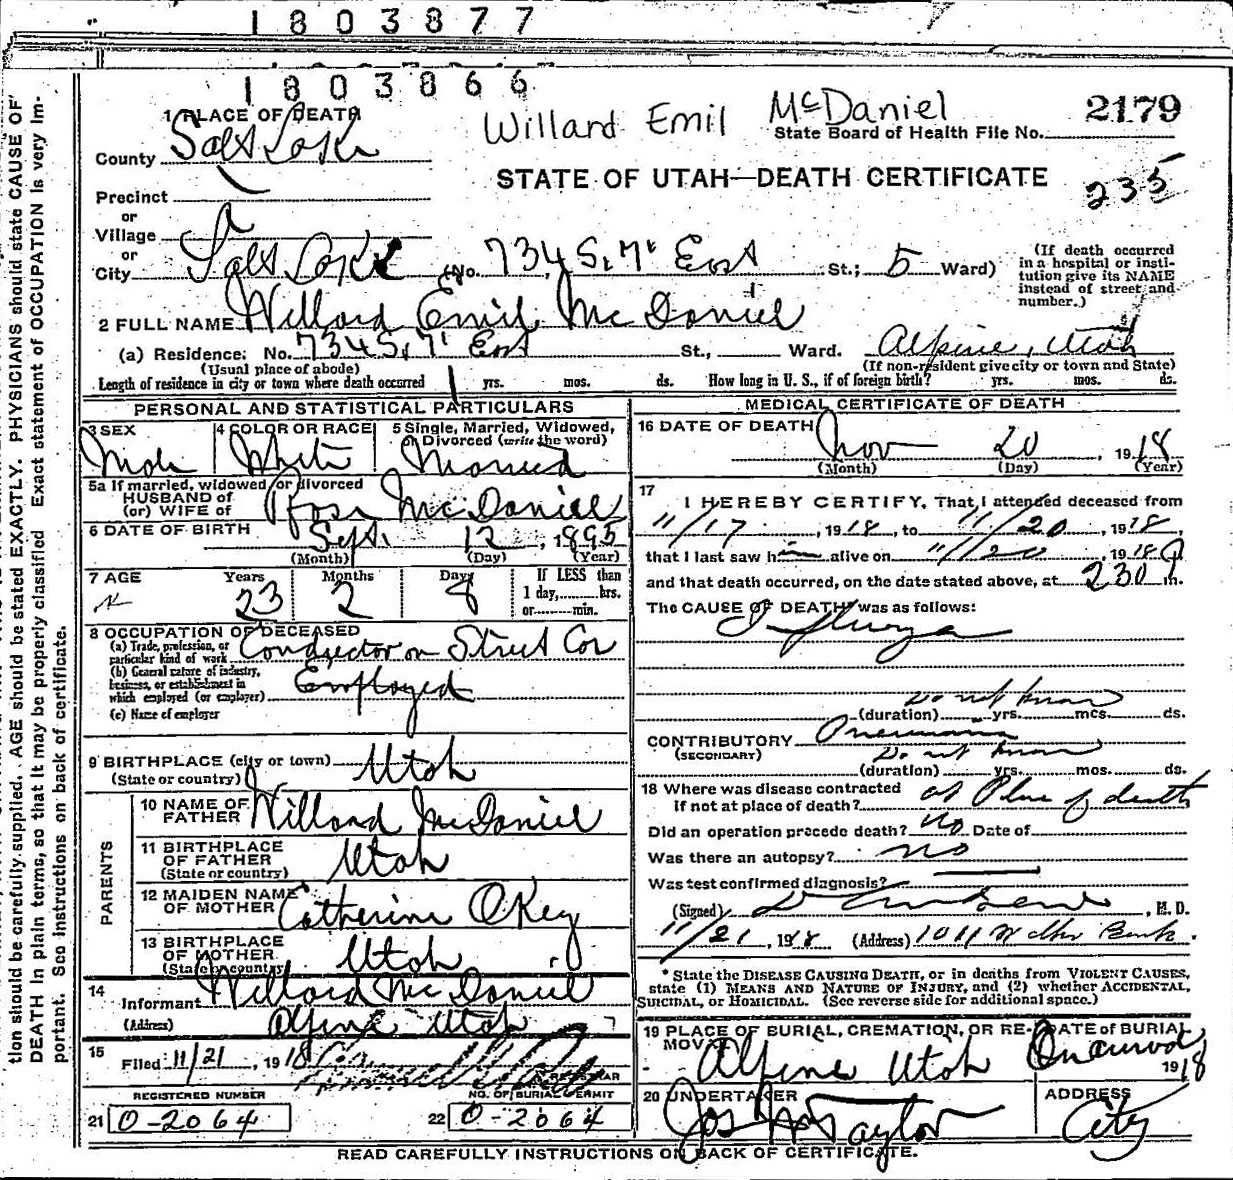 1803877
1803866
Willard Emil McDaniel
2179
State Board of Health File No.
1 PLACE OF DEATH
County Salt Lake
STATE OF UTAH—DEATH CERTIFICATE
235
Precinct
or
Village
or
City Salt Lake (No. 734 S. 7' East St.; 5 Ward)
(If death occurred in a hospital or institution give its NAME instead of street and number.)
2 FULL NAME Willard Emil McDaniel
(a) Residence: No. 734 S. 7' East St., Ward. Alpine, Utah
(Usual place of abode) (If non-resident give city or town and State)
Length of residence in city or town where death occurred 1 yrs. mos. ds. How long in U. S., if of foreign birth? yrs. mos. ds.
PERSONAL AND STATISTICAL PARTICULARS
3 SEX Male
4 COLOR OR RACE White
5 Single, Married, Widowed, or Divorced (write the word) Married
5a If married, widowed or divorced
HUSBAND of
(or) WIFE of Rose McDaniel
6 DATE OF BIRTH Sept. 12, 1895
(Month) (Day) (Year)
7 AGE Years 23 Months 2 Days 8 If LESS than 1 day, hrs. or min.
8 OCCUPATION OF DECEASED
(a) Trade, profession, or particular kind of work Conductor on Street Car
(b) General nature of industry, business, or establishment in which employed (or employer) Employed
(c) Name of employer
9 BIRTHPLACE (city or town) Utah
(State or country)
PARENTS
10 NAME OF FATHER Willard McDaniel
11 BIRTHPLACE OF FATHER Utah
(State or country)
12 MAIDEN NAME OF MOTHER Catherine OKey
13 BIRTHPLACE OF MOTHER Utah
(State or country)
14 Informant Willard McDaniel
(Address) Alpine Utah
15 Filed 11/21, 1918
REGISTRAR
REGISTERED NUMBER NO. OF BURIAL PERMIT
21 0-2064 22 0-2064
MEDICAL CERTIFICATE OF DEATH
16 DATE OF DEATH Nov 20, 1918
(Month) (Day) (Year)
17 I HEREBY CERTIFY, That I attended deceased from
11/17, 1918, to 11/20, 1918,
that I last saw him alive on 11/20, 1918
and that death occurred, on the date stated above, at 230 P m.
The CAUSE OF DEATH was as follows:
Influenza
Do not know
(duration) yrs. mos. ds.
CONTRIBUTORY Pneumonia
(SECONDARY) Do not know
(duration) yrs. mos. ds.
18 Where was disease contracted
if not at place of death? at Place of death
Did an operation precede death? no Date of
Was there an autopsy? no
Was test confirmed diagnosis?
(Signed) , M. D.
11/21, 1918 (Address) 1011 Walker Bank
* State the DISEASE CAUSING DEATH, or in deaths from VIOLENT CAUSES,
state (1) MEANS AND NATURE OF INJURY, and (2) whether ACCIDENTAL,
SUICIDAL, or HOMICIDAL. (See reverse side for additional space.)
19 PLACE OF BURIAL, CREMATION, OR REMOVAL Alpine Utah
DATE of BURIAL 1918
20 UNDERTAKER Jos Wm Taylor
ADDRESS City
READ CAREFULLY INSTRUCTIONS ON BACK OF CERTIFICATE.
tion should be carefully supplied. AGE should be stated EXACTLY. PHYSICIANS should state CAUSE OF
DEATH in plain terms, so that it may be properly classified. Exact statement of OCCUPATION is very im-
portant. See instructions on back of certificate.